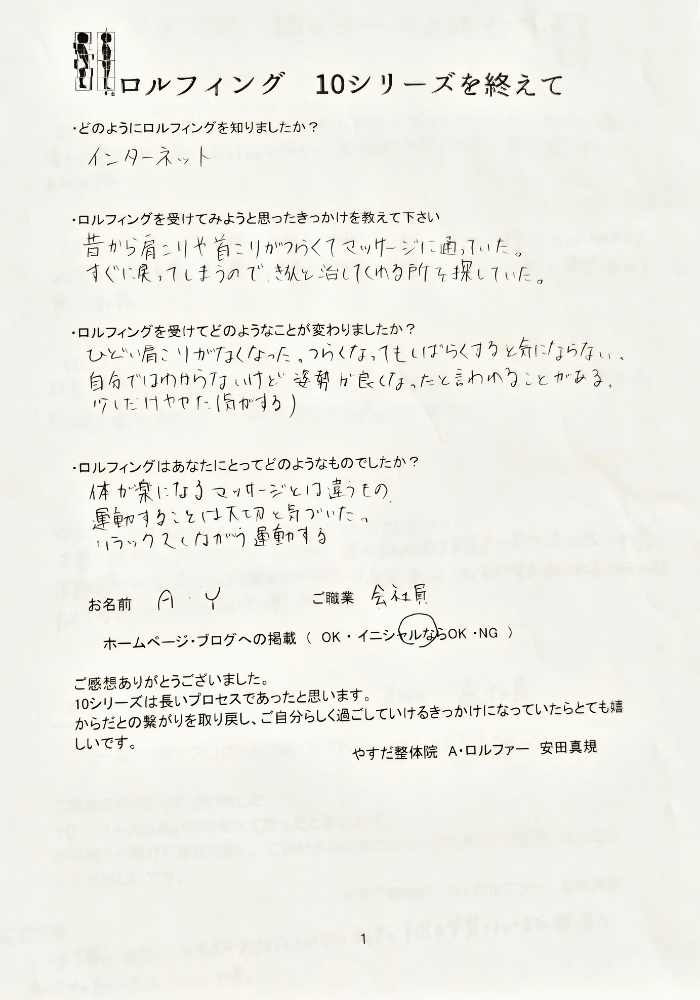 ロルフィング 10シリーズを終えて
・どのようにロルフィングを知りましたか？
インターネット
・ロルフィングを受けてみようと思ったきっかけを教えて下さい
昔から肩こりや首こりがつらくてマッサージに通っていた。
すぐに戻ってしまうので、きちんと治してくれる所を探していた。
・ロルフィングを受けてどのようなことが変わりましたか？
ひどい肩こりがなくなった。つらくなってもしばらくすると気にならない。
自分ではわからないけど 姿勢が良くなったと言われることがある。
少しだけやせた(気がする)
・ロルフィングはあなたにとってどのようなものでしたか？
体が楽になるマッサージとは違うもの
運動することは大切と気づいた。
リラックスしながら運動する
お名前 A・Y ご職業 会社員
ホームページ・ブログへの掲載（ OK・イニシャルならOK・NG ）
ご感想ありがとうございました。
10シリーズは長いプロセスであったと思います。
からだとの繋がりを取り戻し、ご自分らしく過ごしていけるきっかけになっていたらとても嬉
しいです。
やすだ整体院 A・ロルファー 安田真規
1